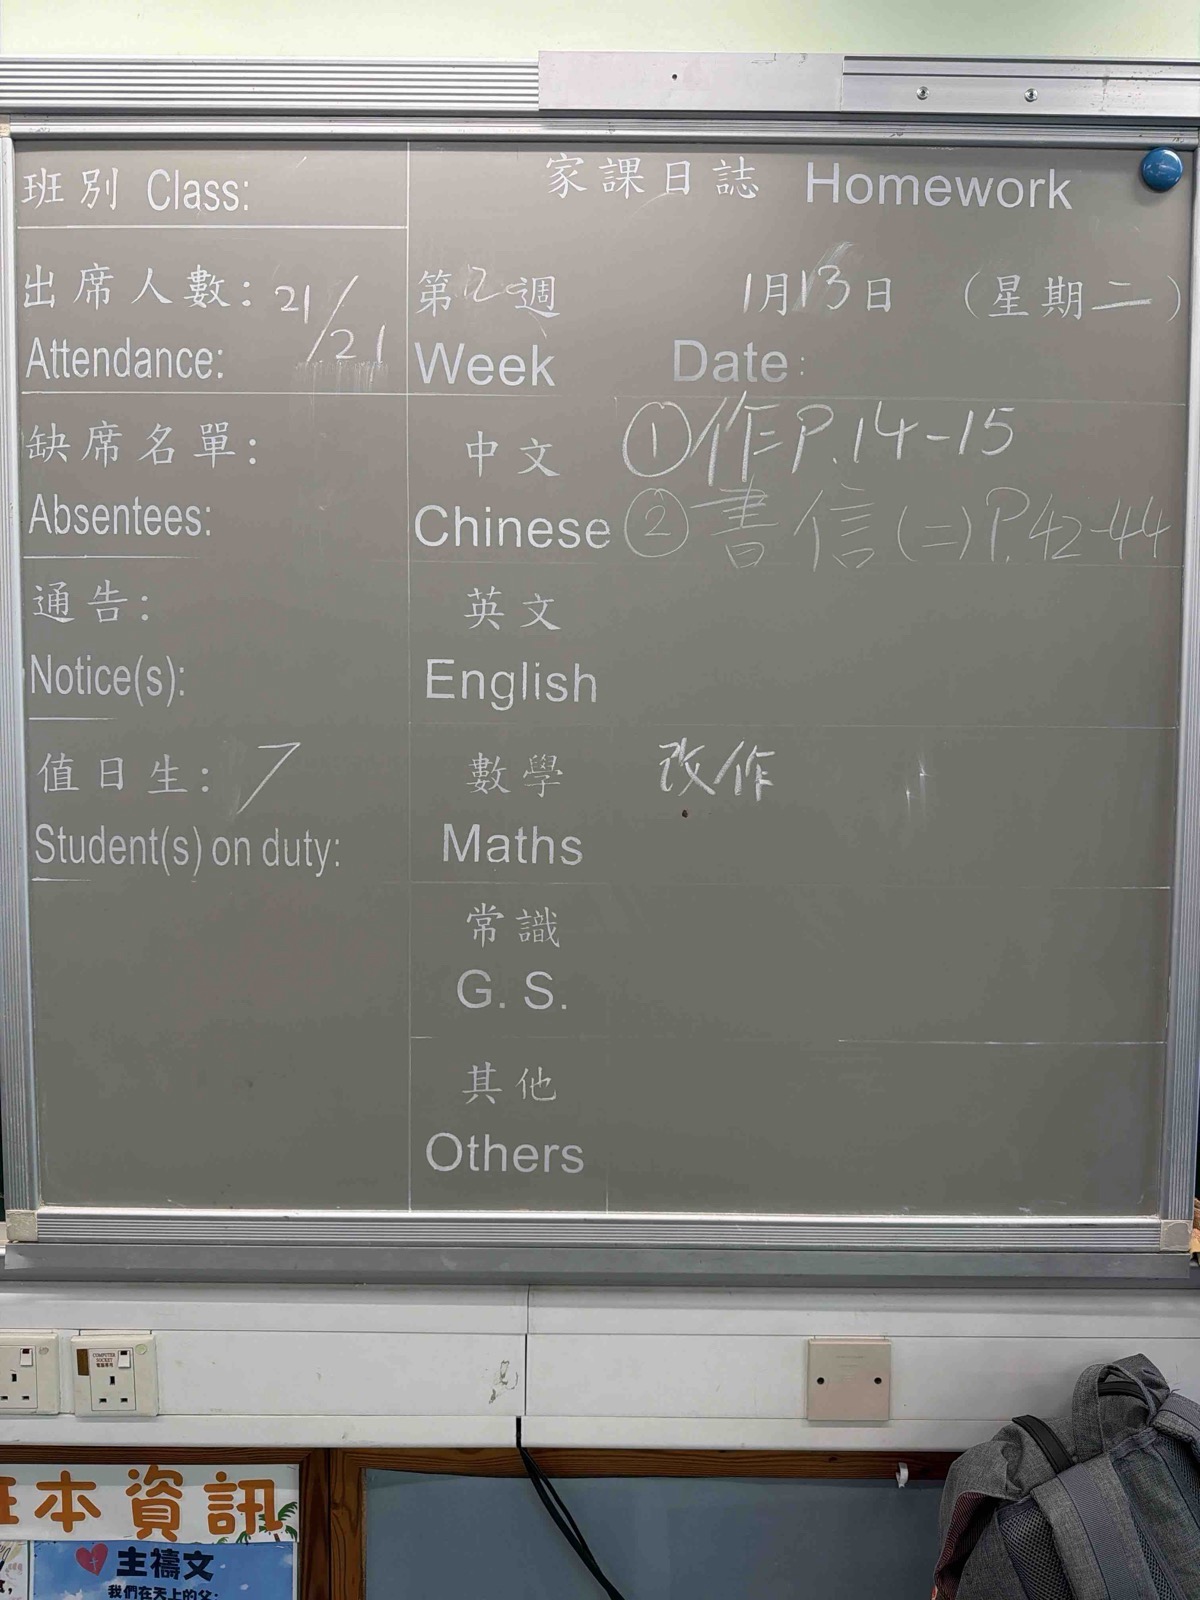 班別 Class:
出席人數: 21/21
Attendance:
缺席名單:
Absentees:
通告:
Notice(s):
值日生: 7
Student(s) on duty:
家課日誌 Homework
第2週 1月13日 (星期二)
Week Date:
中文 ①作P.14-15
Chinese ②書信(二)P.42-44
英文
English
數學 改作
Maths
常識
G. S.
其他
Others
COMPUTER SOCKET
本資訊
主禱文
我們在天上的父: